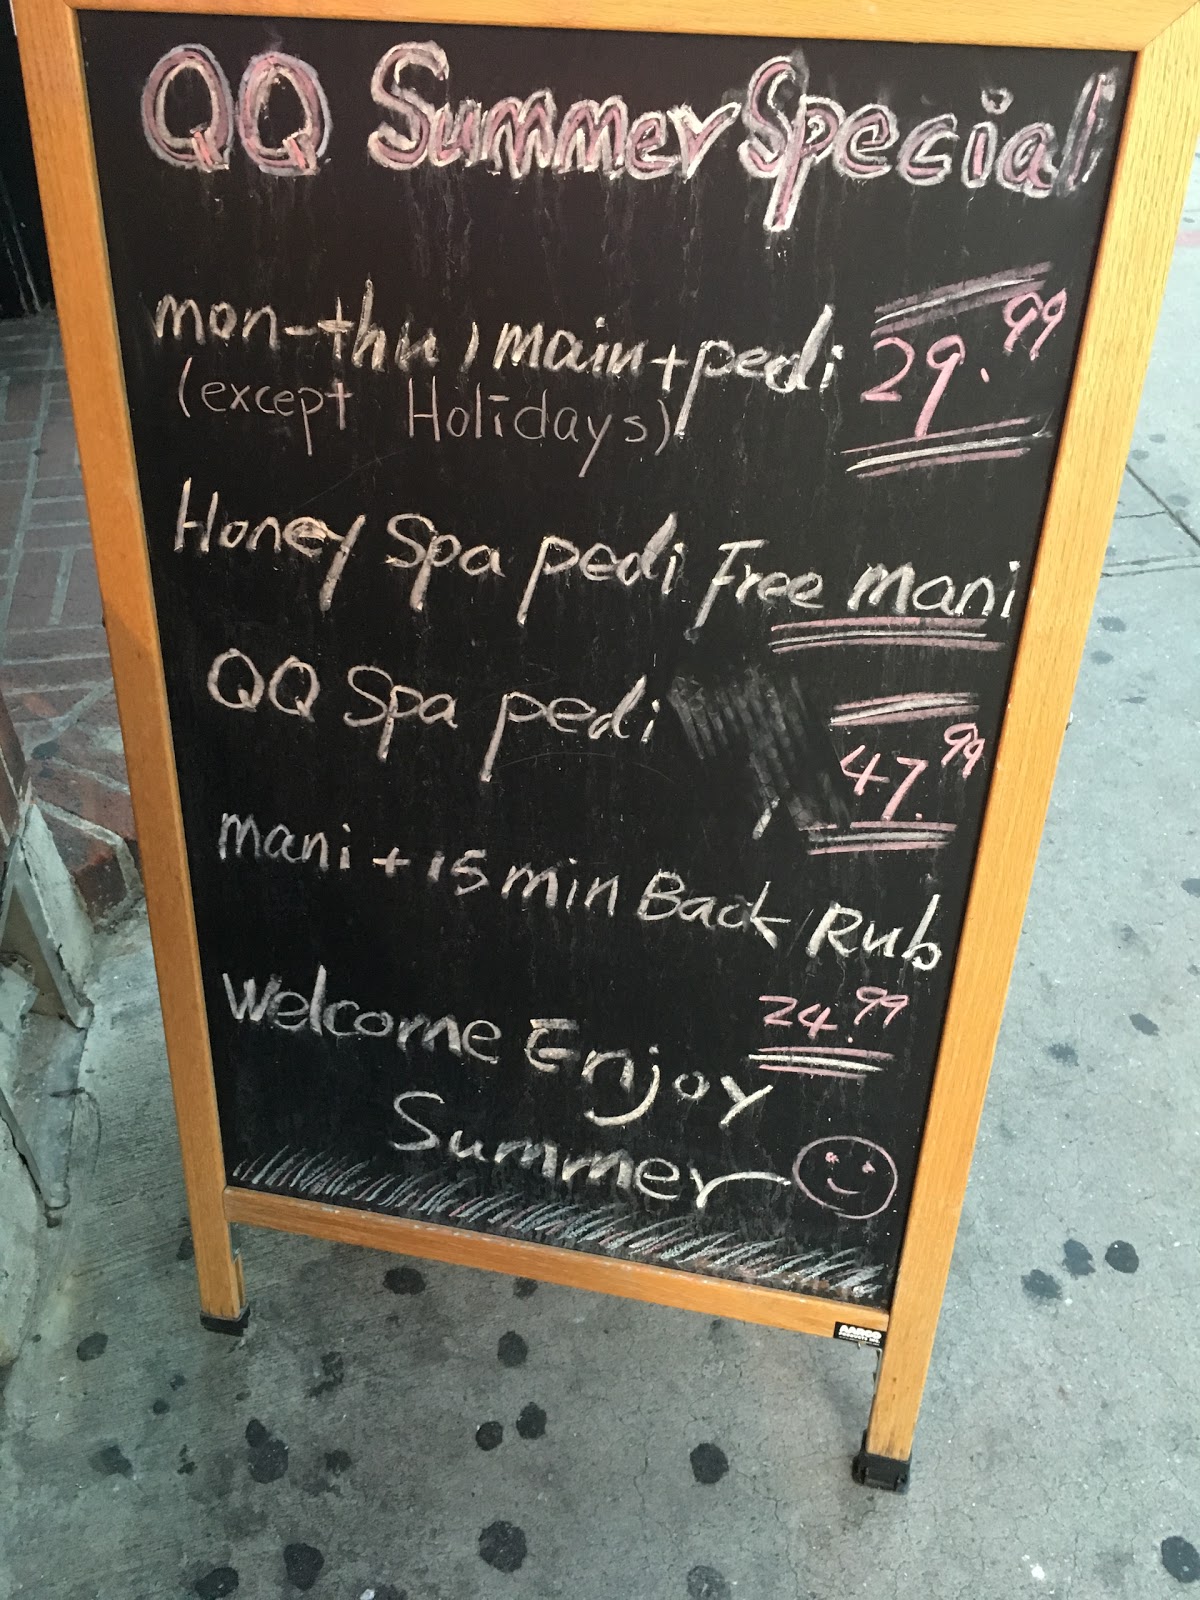 QQ Summer Special
mon-thu, main + pedi 29.99
(except Holidays)
Honey Spa pedi Free mani
QQ Spa pedi 47.99
mani + 15 min Back Rub
24.99
Welcome Enjoy
Summer